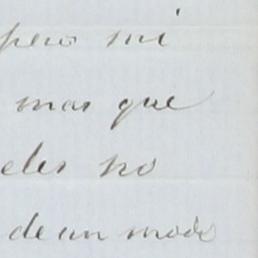 pero mi
mas que
eles no
de un modo